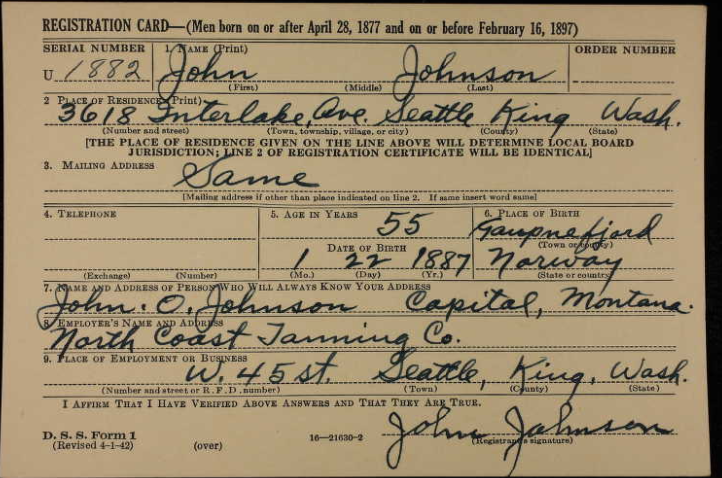 REGISTRATION CARD—(Men born on or after April 28, 1877 and on or before February 16, 1897)
SERIAL NUMBER 1. NAME (Print) ORDER NUMBER
U 1882 John Johnson
(First) (Middle) (Last)
2 PLACE OF RESIDENCE (Print)
3618 Interlake, Ave. Seattle King Wash.
(Number and street) (Town, township, village, or city) (County) (State)
[THE PLACE OF RESIDENCE GIVEN ON THE LINE ABOVE WILL DETERMINE LOCAL BOARD
JURISDICTION; LINE 2 OF REGISTRATION CERTIFICATE WILL BE IDENTICAL]
3. MAILING ADDRESS
Same
[Mailing address if other than place indicated on line 2. If same insert word same]
4. TELEPHONE 5. AGE IN YEARS 6. PLACE OF BIRTH
55 Gaupnefjord
DATE OF BIRTH (Town or county)
1 22 1887 Norway
(Exchange) (Number) (Mo.) (Day) (Yr.) (State or country)
7. NAME AND ADDRESS OF PERSON WHO WILL ALWAYS KNOW YOUR ADDRESS
John. O. Johnson Capital, Montana.
8. EMPLOYER'S NAME AND ADDRESS
North Coast Tanning Co.
9. PLACE OF EMPLOYMENT OR BUSINESS
W. 45 st. Seattle, King, Wash.
(Number and street or R. F. D. number) (Town) (County) (State)
I AFFIRM THAT I HAVE VERIFIED ABOVE ANSWERS AND THAT THEY ARE TRUE.
D. S. S. Form 1 John Johnson
(Revised 4-1-42) (over) 16—21630-2 (Registrant's signature)